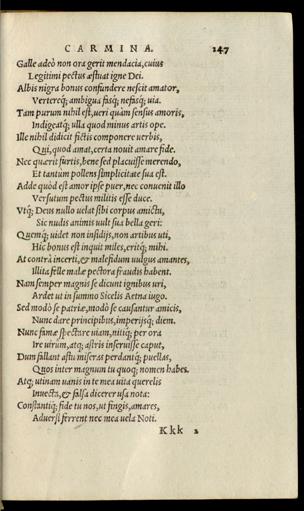 CARMINA. 147
Galle adeò non ora gerit mendacia, cuius
Legitimi pectus æstuat igne Dei.
Albis nigra bonus confundere nescit amator,
Vertereq; ambigua fasq; nefasq; uia.
Tam purum nihil est, ueri quàm sensus amoris,
Indigeatq; ulla quod minus artis ope.
Ille nihil didicit fictis componere uerbis,
Qui, quod amat, certa nouit amare fide.
Nec quærit furtis, bene sed placuisse merendo,
Et tantum pollens simplicitate sua est.
Adde quòd est amor ipse puer, nec conuenit illo
Versutum pectus militis esse duce.
Vtq; Deus nullo uelat sibi corpus amictu,
Sic nudis animis uult sua bella geri:
Quemq; uidet non insidijs, non artibus uti,
Hic bonus est inquit miles, eritq; mihi.
At contrà incerti, & malefidum uulgus amantes,
Illita felle malæ pectora fraudis habent.
Nam semper magnis se dicunt ignibus uri,
Ardet ut in summo Sicelis Aetna iugo.
Sed modò se patriæ, modò se causantur amicis,
Nunc dare principibus, imperijsq; diem.
Nunc famæ spectare uiam, nitiq; per ora
Ire uirum, atq; astris inseruisse caput,
Dum fallant astu miseras perdantq; puellas,
Quos inter magnum tu quoq; nomen habes.
Atq; utinam uanis in te mea uita querelis
Inuecta, & falsa dicerer usa nota:
Constantiq; fide tu nos, ut fingis, amares,
Aduersi ferrent nec mea uela Noti.
Kkk 2